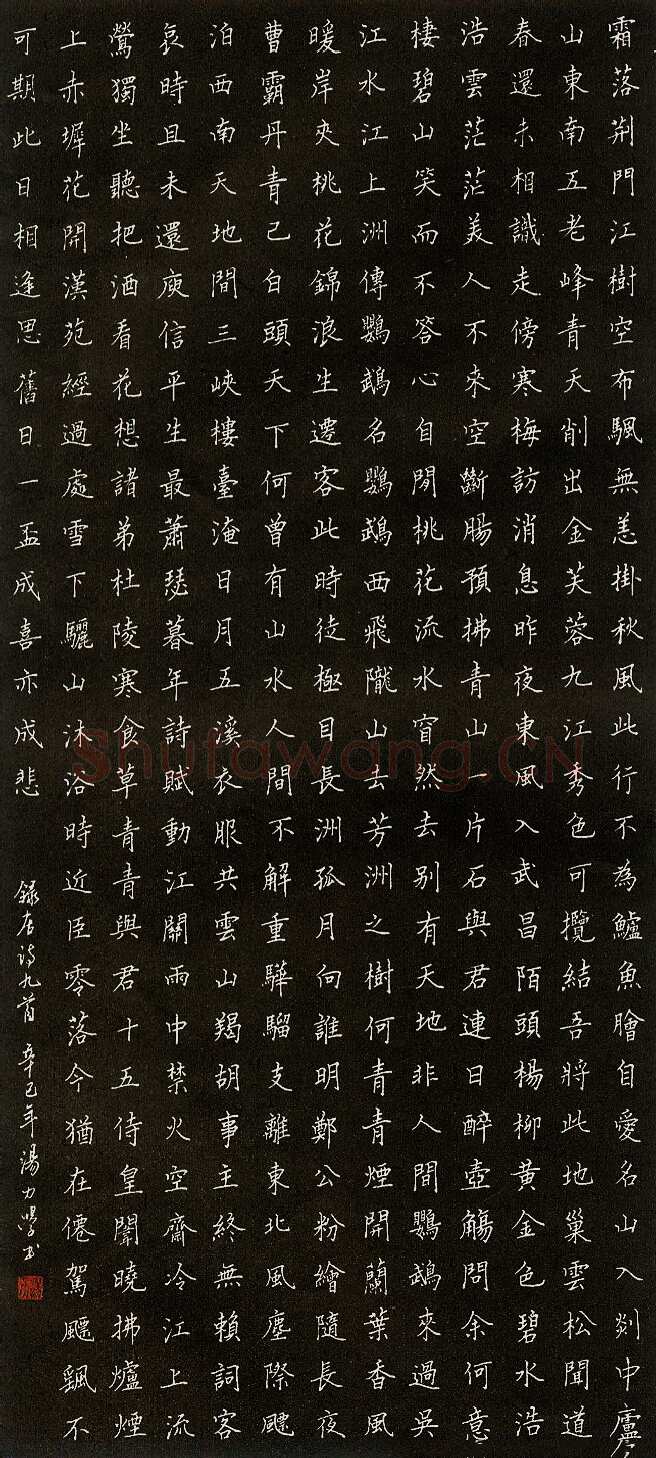 霜落荆門江樹空布颿無恙掛秋風此行不為鱸魚膾自愛名山入剡中廬
山東南五老峰青天削出金芙蓉九江秀色可攬結吾將此地巢雲松聞道
春還未相識走傍寒梅訪消息昨夜東風入武昌陌頭楊柳黃金色碧水浩
浩雲茫茫美人不來空斷腸預拂青山一片石與君連日醉壺觴問余何意
棲碧山笑而不答心自閒桃花流水窅然去別有天地非人間鸚鵡來過吳
江水江上洲傳鸚鵡名鸚鵡西飛隴山去芳洲之樹何青青煙開蘭葉香風
暖岸夾桃花錦浪生遷客此時徒極目長洲孤月向誰明鄭公粉繪隨長夜
曹霸丹青已白頭天下何曾有山水人間不解重驊騮支離東北風塵際飄
泊西南天地間三峽樓臺淹日月五溪衣服共雲山羯胡事主終無賴詞客
哀時且未還庾信平生最蕭瑟暮年詩賦動江關雨中禁火空齋冷江上流
鶯獨坐聽把酒看花想諸弟杜陵寒食草青青與君十五侍皇闈曉拂爐煙
上赤墀花開漢苑經過處雪下驪山沐浴時近臣零落今猶在僊駕飄颻不
可期此日相逢思舊日一盃成喜亦成悲
錄唐詩九首 辛巳年湯力學書
Shufawang.CN